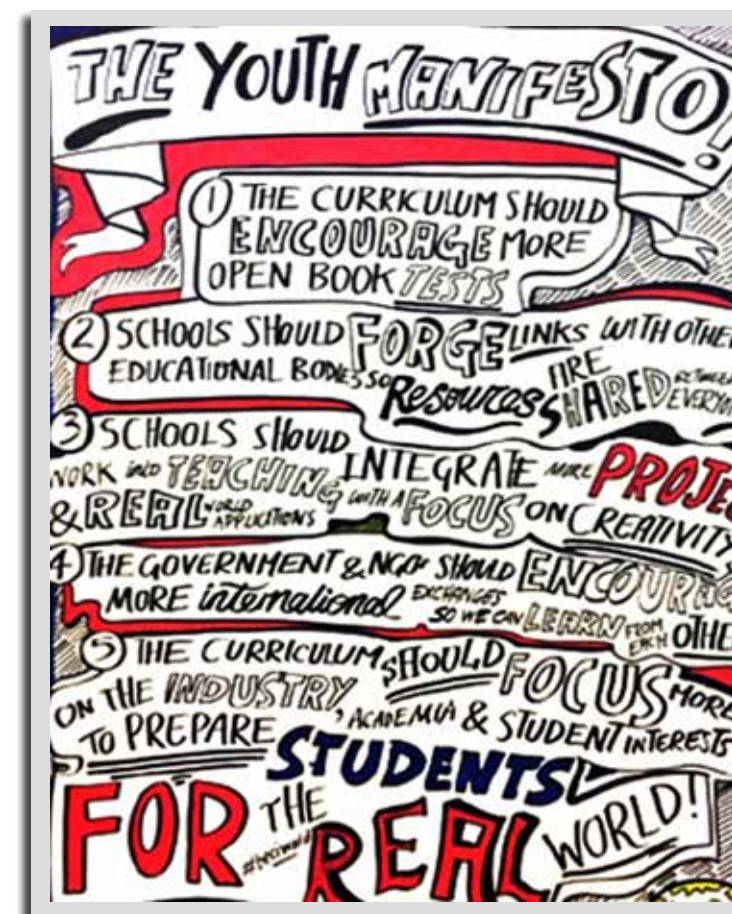 THE YOUTH MANIFESTO!
1 THE CURRICULUM SHOULD
ENCOURAGE MORE
OPEN BOOK TESTS
2 SCHOOLS SHOULD FORGE LINKS WITH OTHE
EDUCATIONAL BODIES SO Resources ARE SHARED
3 SCHOOLS SHOULD INTEGRATE MORE PROJE
WORK into TEACHING WITH A FOCUS ON CREATIVITY
& REAL WORLD APPLICATIONS
4 THE GOVERNMENT & NGOs SHOULD ENCOURAG
MORE international EXCHANGES SO WE CAN LEARN FROM EACH OTHE
5 THE CURRICULUM SHOULD FOCUS MORE
ON THE INDUSTRY, ACADEMIA & STUDENT INTERESTS
TO PREPARE STUDENTS
FOR THE REAL WORLD!